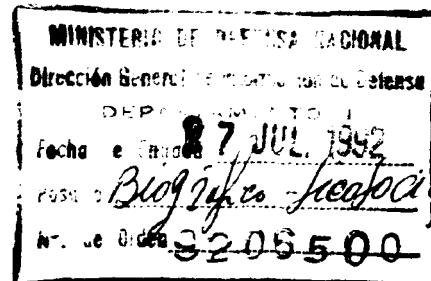 MINISTERIO DE DEFENSA NACIONAL
Dirección General de de Defensa
DEPARTAMENTO I
Fecha e 27 JUL. 1992
Pasó a Biográfico
Nº. de Orden 9206500